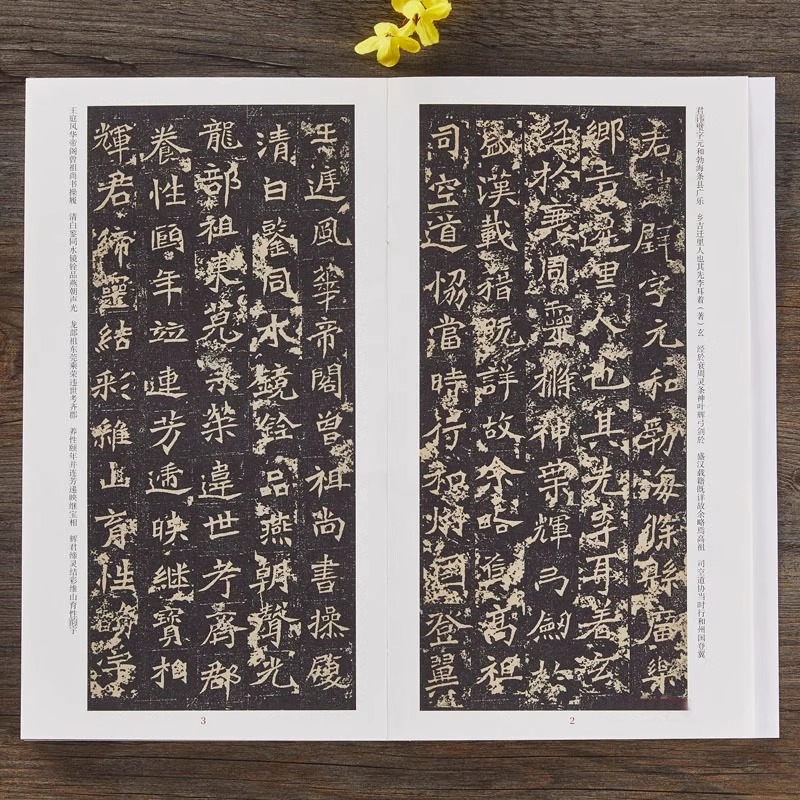 君讳璧字元和勃海条县广乐 乡吉迁里人也其先李耳着（著）玄 经於衰周灵条神叶辉弓剑於 盛汉载籍既详故余略焉高祖 司空道协当时行和州国登翼
君諱璧字元和勃海條縣廣樂
鄉吉遷里人也其先李耳著玄
經於衰周靈條神葉輝弓劍於
盛漢載籍既詳故余略焉高祖
司空道協當時行和州國登翼
2
王遲風華帝閣曾祖尚書操履
清白鑒同水鏡銓品燕朝聲光
龍部祖東莞乘榮違世考齊郡
養性頤年並連芳遞映繼寶相
輝君締靈結彩維山育性韵宇
王庭风华帝阁曾祖尚书操履 清白鉴同水镜铨品燕朝声光 龙部祖东莞乘荣违世考齐郡 养性颐年并连芳递映继宝相 辉君缔灵结彩维山育性韵宇
3